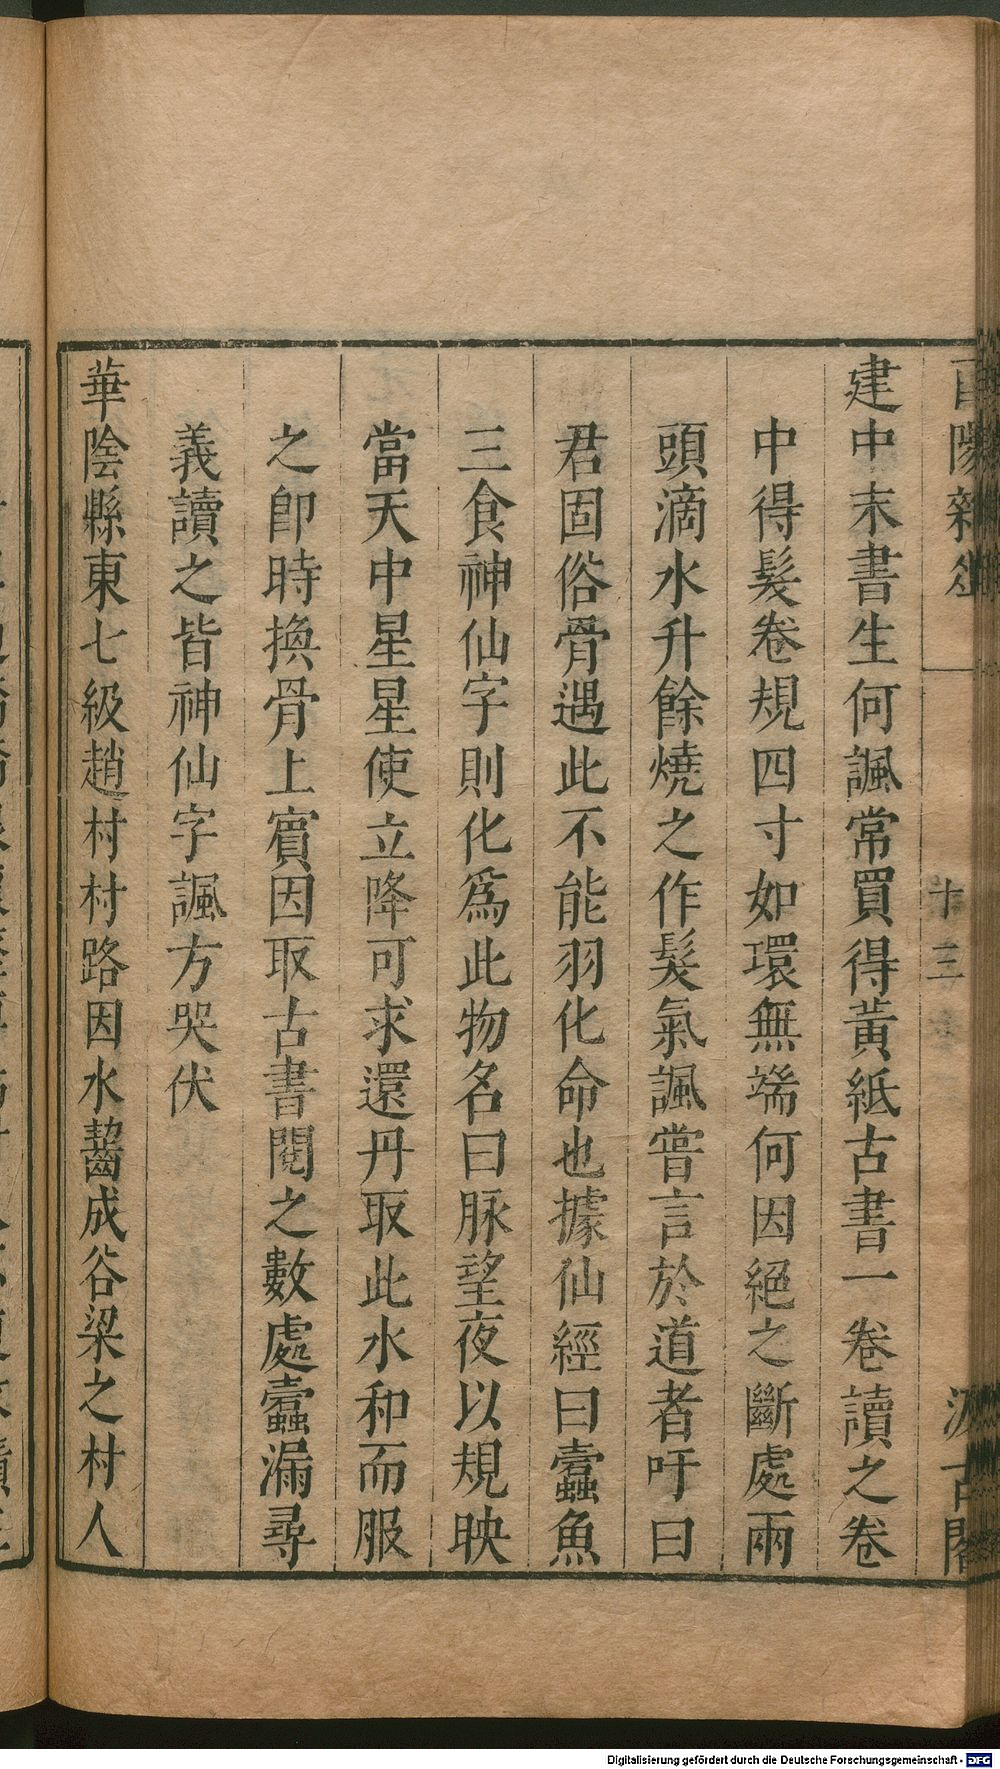 酉陽雜俎
十三
汲古閣
建中末書生何諷常買得黃紙古書一卷讀之卷
中得髮卷規四寸如環無端何因絕之斷處兩
頭滴水升餘燒之作髮氣諷嘗言於道者吁曰
君固俗骨遇此不能羽化命也據仙經曰蠧魚
三食神仙字則化爲此物名曰脉望夜以規映
當天中星星使立降可求還丹取此水和而服
之卽時換骨上賓因取古書閱之數處蠧漏尋
義讀之皆神仙字諷方哭伏
華陰縣東七級趙村村路因水齧成谷梁之村人
Digitalisierung gefördert durch die Deutsche Forschungsgemeinschaft - DFG